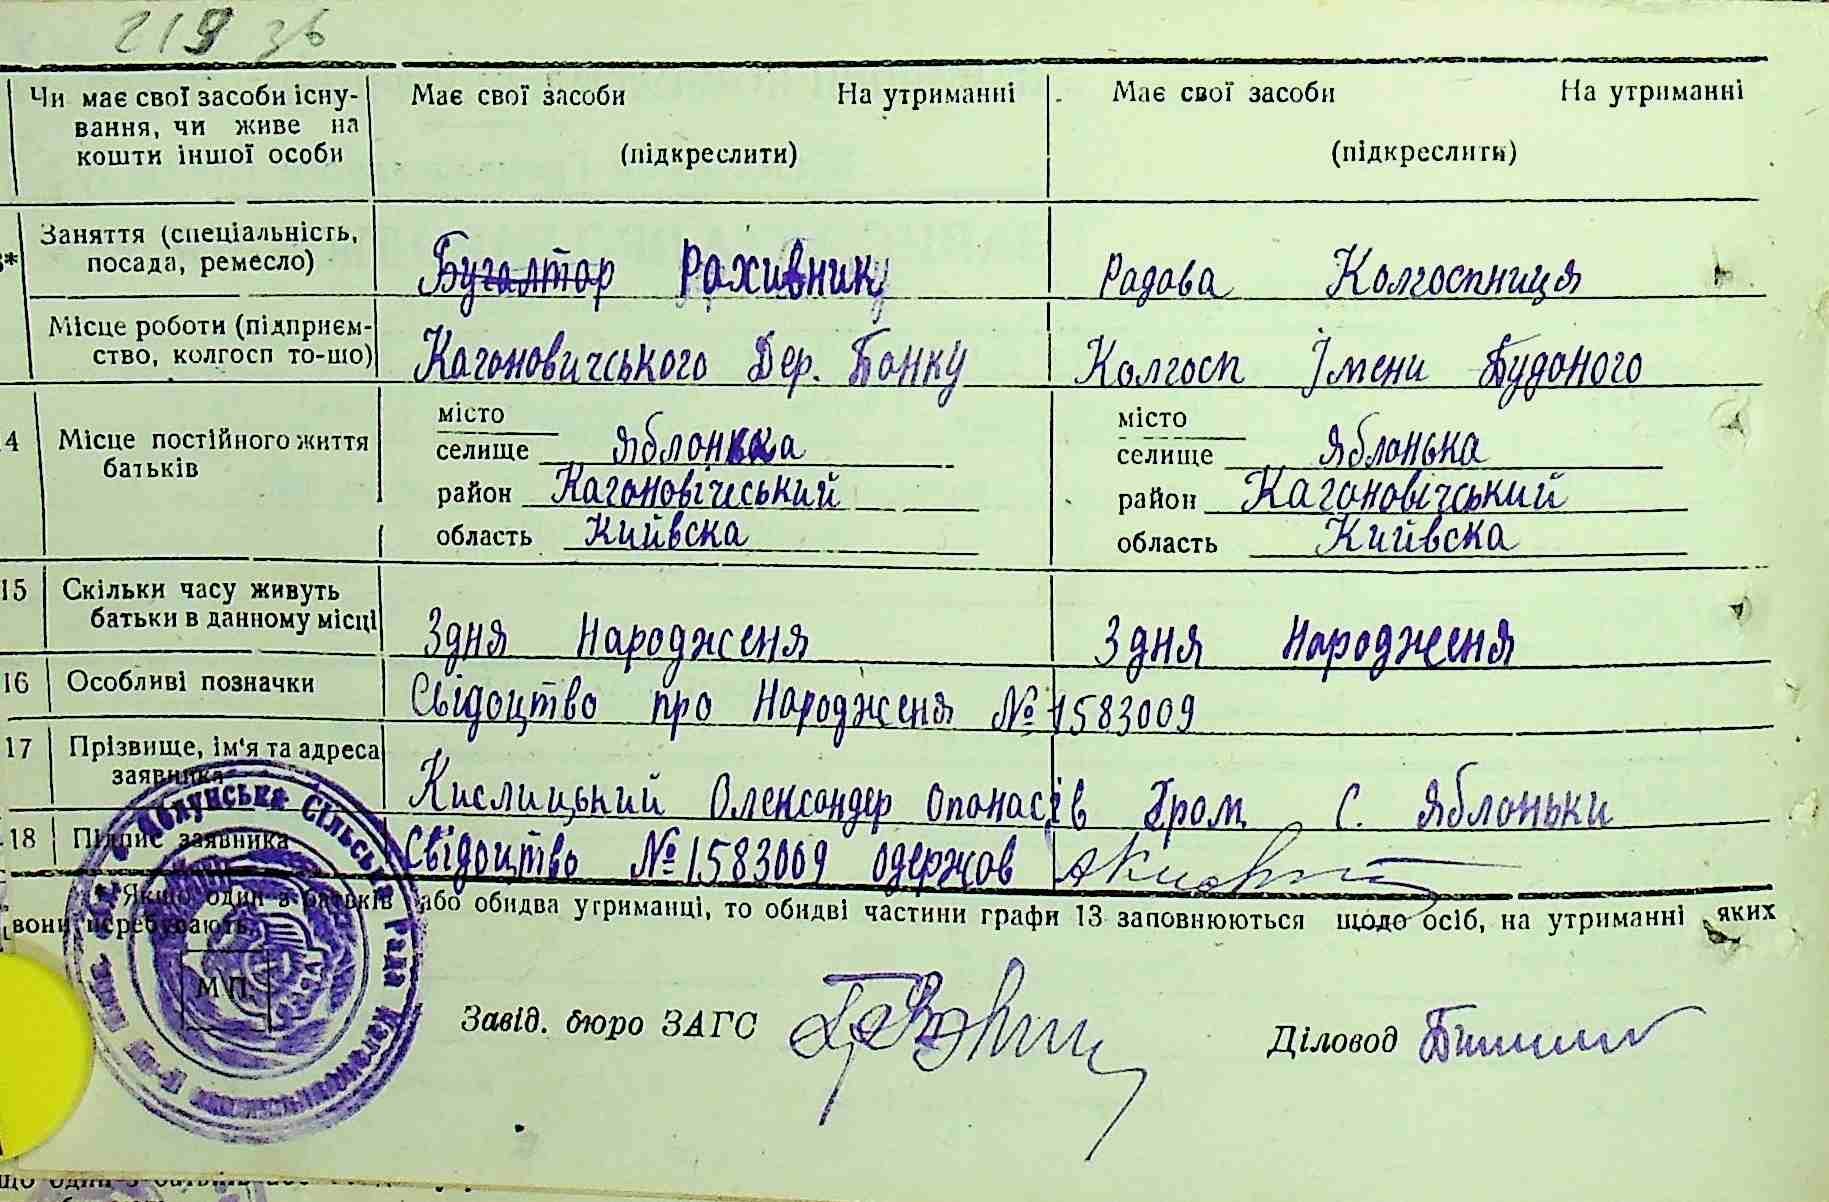 219 зб
Чи має свої засоби існу-
вання, чи живе на
кошти іншої особи
Має свої засоби На утриманні
(підкреслити)
Має свої засоби На утриманні
(підкреслити)
Заняття (спеціальність,
посада, ремесло)
Бугалтор Раживнику
Радава Колгоспниця
Місце роботи (підприєм-
ство, колгосп то-що)
Кагоновичського Дер. Банку
Колгосп Імени Будоного
4 Місце постійного життя
батьків
місто
селище Яблонька
район Кагоновічеський
область Кийвска
місто
селище Яблонька
район Кагоновічський
область Кийвска
15 Скільки часу живуть
батьки в данному місці
Здня Народженя
Здня Народженя
16 Особливі позначки
Свідоцтво про Народженя № 1583009
17 Прізвище, ім'я та адреса
заявника
Кислицький Олександер Опонасів Гром. С. Яблоньки
18 Підпис заявника
Свідоцтво № 1583009 одержов
* Якщо один з батьків або обидва угриманці, то обидві частини графи 13 заповнюються щодо осіб, на утриманні яких
вони перебувають.
М П
Яблунська Сільська Рада
Завід. бюро ЗАГС
Діловод